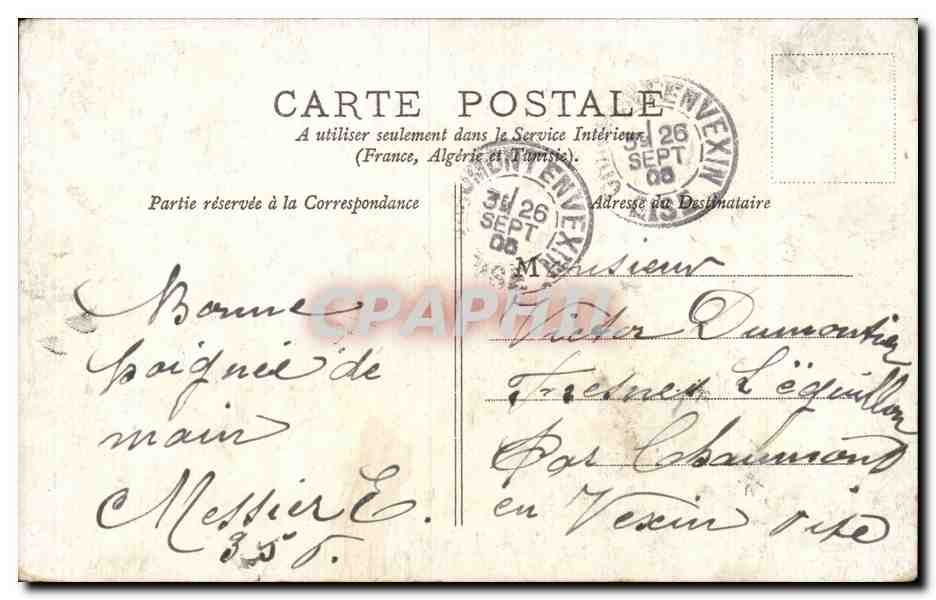 CARTE POSTALE
A utiliser seulement dans le Service Intérieur
(France, Algérie et Tunisie).
Partie réservée à la Correspondance
Adresse du Destinataire
ENVEXIN
26
SEPT
MONT ENVEXIN
26
SEPT
CPAPHIL
Bonne
poignée de
main
Messier E.
Monsieur
Victor Dumontier
Fresnes L'éguillon
par Chaumont
en Vexin oise